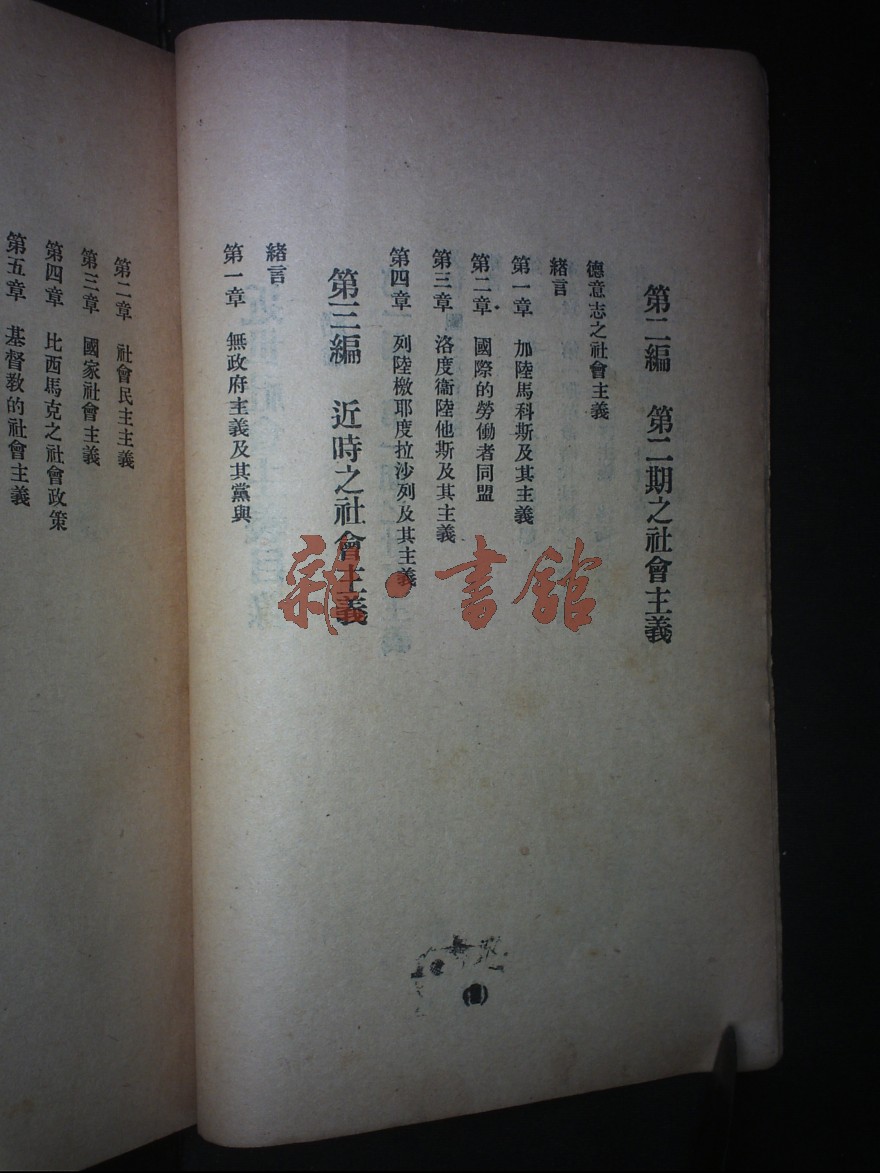 第二編　第二期之社會主義
德意志之社會主義
緒言
第一章　加陸馬科斯及其主義
第二章　國際的勞働者同盟
第三章　洛度衞陸他斯及其主義
第四章　列陸檄耶度拉沙列及其主義
第三編　近時之社會主義
緒言
第一章　無政府主義及其黨與
第二章　社會民主主義
第三章　國家社會主義
第四章　比西馬克之社會政策
第五章　基督教的社會主義
雜·書館